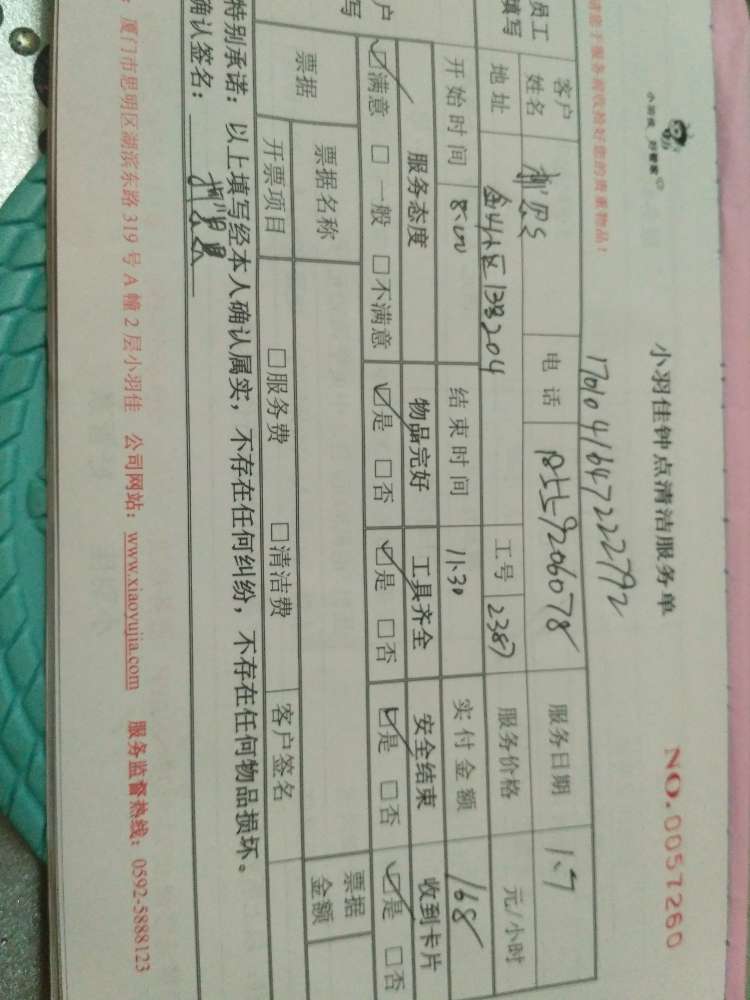 小羽佳 好管家
小羽佳钟点清洁服务单
NO.0057260
请您于服务前收拾好您的贵重物品!
1701041647222792
员工填写
客户姓名 电话 服务日期 1.7
地址 金山小区138204 工号 2387 服务价格 元/小时
开始时间 8:00 结束时间 11:30 实付金额 168
户
写
服务态度 物品完好 工具齐全 安全结束 收到卡片
☑满意 □一般 □不满意 ☑是 □否 ☑是 □否 ☑是 □否 ☑是 □否
票据 票据名称 票据金额
开票项目 □服务费 □清洁费 客户签名
特别承诺:以上填写经本人确认属实,不存在任何纠纷,不存在任何物品损坏。
确认签名:
厦门市思明区湖滨东路319号A幢2层小羽佳 公司网站:www.xiaoyujia.com 服务监督热线:0592-5888123